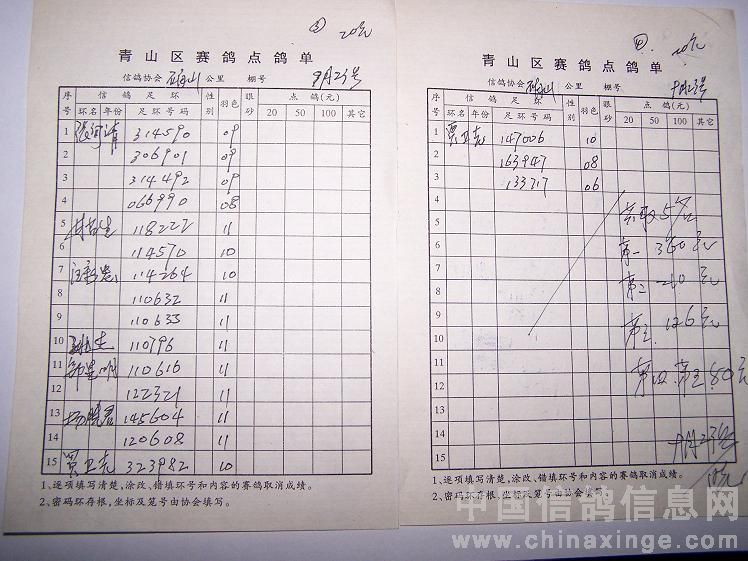 ③ 20元
青山区赛鸽点鸽单
信鸽协会 公里 棚号 9月23号
序号 信鸽足环 性别 羽色 眼砂 点鸽(元)
环名 年份 足环号码 20 50 100 其它
1 314590 09
2 306901 09
3 314492 09
4 066990 08
5 118222 11
6 114570 10
7 114264 10
8 110632 11
9 110633 11
10 110796 11
11 110616 11
12 122321 11
13 145604 11
14 120608 11
15 贾卫克 323982 10
1、逐项填写清楚,涂改、错填环号和内容的赛鸽取消成绩。
2、密码环存根,坐标及笼号由协会填写。
④ 20元
青山区赛鸽点鸽单
信鸽协会 公里 棚号 9月23号
序号 信鸽足环 性别 羽色 眼砂 点鸽(元)
环名 年份 足环号码 20 50 100 其它
1 贾卫克 147006 10
2 163947 08
3 133717 06
4
5 录取5名
6 第一 360元
7
8 第二 210元
9
10 第三 126元
11
12 第四.第五 80元
13
14 9月23号
15
1、逐项填写清楚,涂改、错填环号和内容的赛鸽取消成绩。
2、密码环存根,坐标及笼号由协会填写。
中国信鸽信息网
www.chinaxinge.com